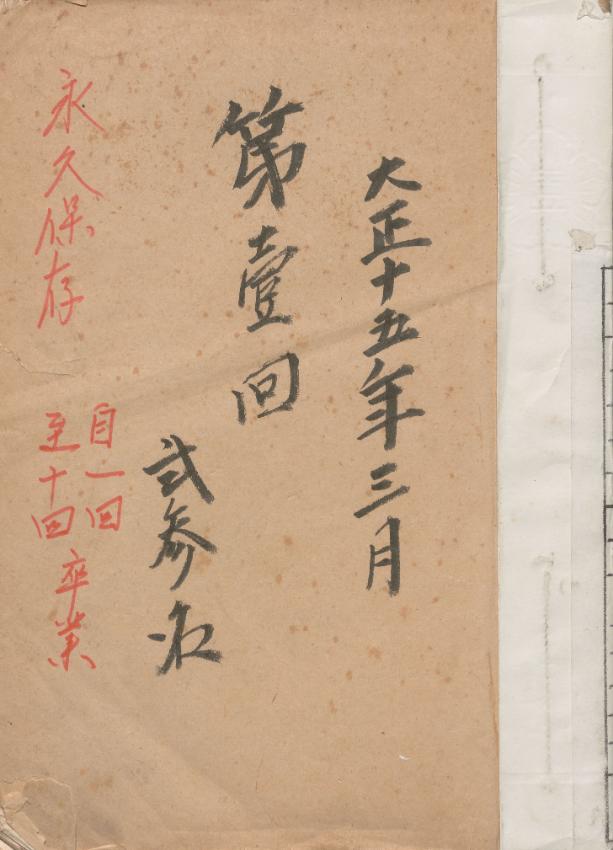 大正十五年三月
第壹回
弐参名
永久保存
自一回
至十回
卒業